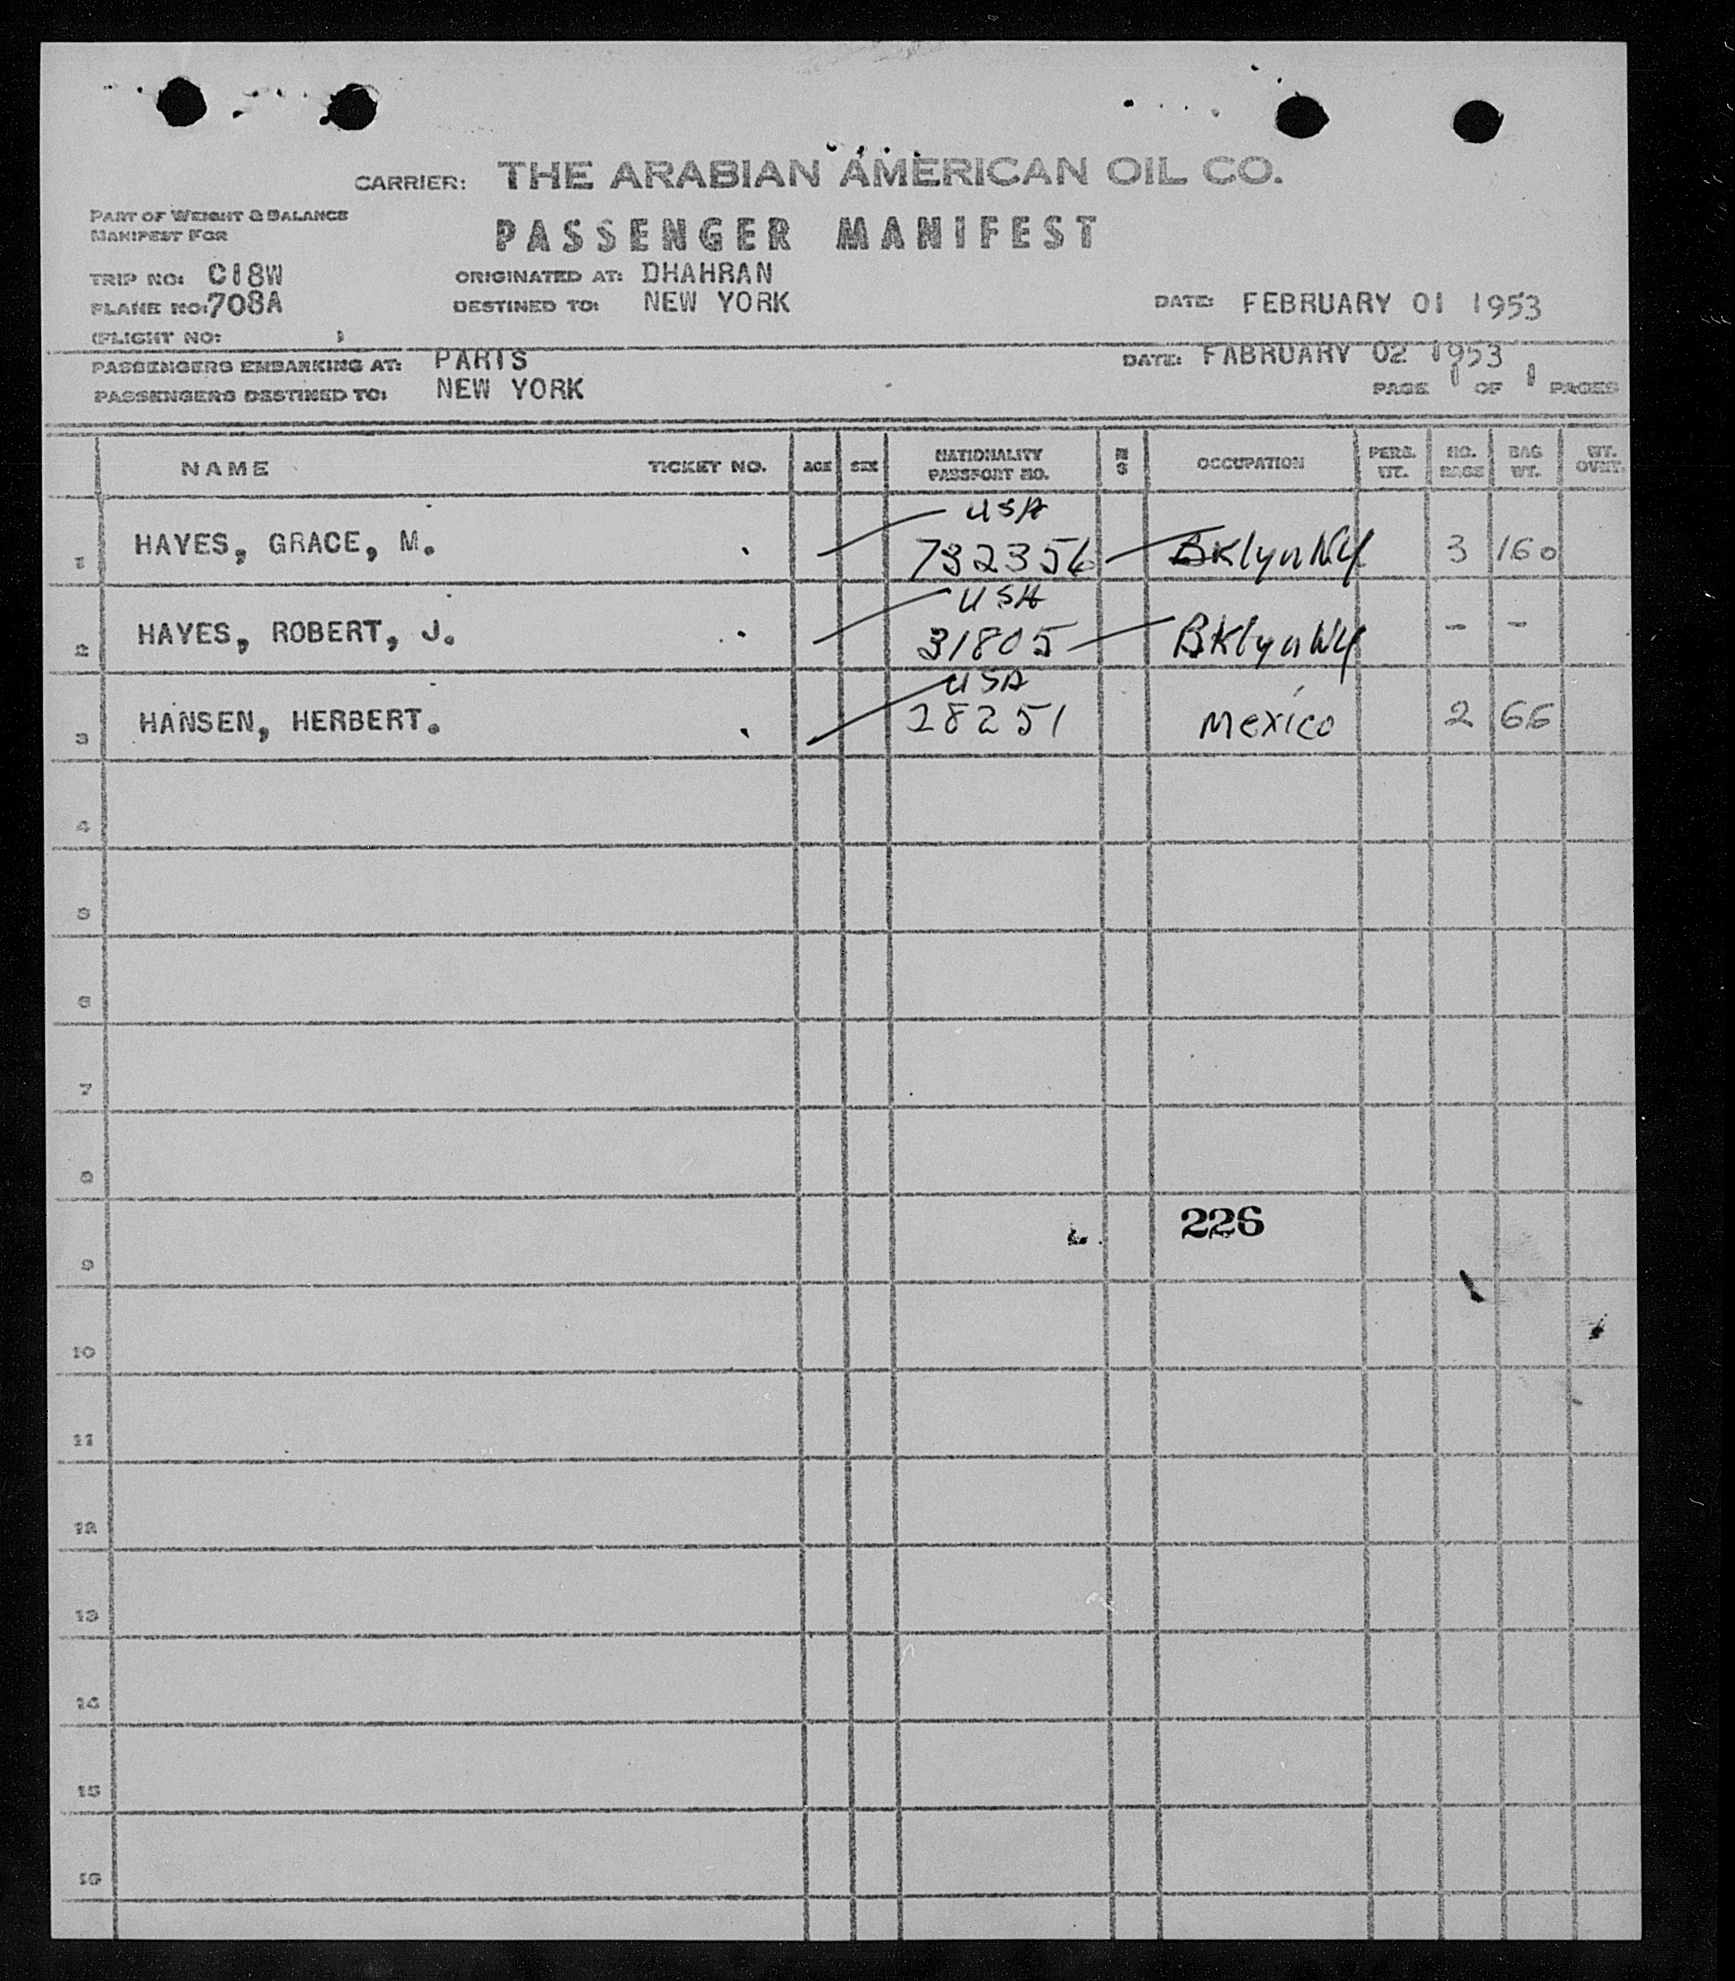 CARRIER: THE ARABIAN AMERICAN OIL CO.
PART OF WEIGHT & BALANCE
MANIFEST FOR
PASSENGER MANIFEST
TRIP NO: C18W ORIGINATED AT: DHAHRAN
PLANE NO: 708A DESTINED TO: NEW YORK DATE: FEBRUARY 01 1953
(FLIGHT NO: )
PASSENGERS EMBARKING AT: PARIS DATE: FABRUARY 02 1953
PASSENGERS DESTINED TO: NEW YORK PAGE 1 OF 1 PAGES
NAME TICKET NO. AGE SEX NATIONALITY PASSPORT NO. OCCUPATION PERS. WT. NO. BAGS BAG WT. WT. OVWT.
USA
1 HAYES, GRACE, M. 732356 BKlyn NY 3 160
USA
2 HAYES, ROBERT, J. 31805 BKlyn NY - -
USA
3 HANSEN, HERBERT. 28251 Mexico 2 66
4
5
6
7
8
226
9
10
11
12
13
14
15
16